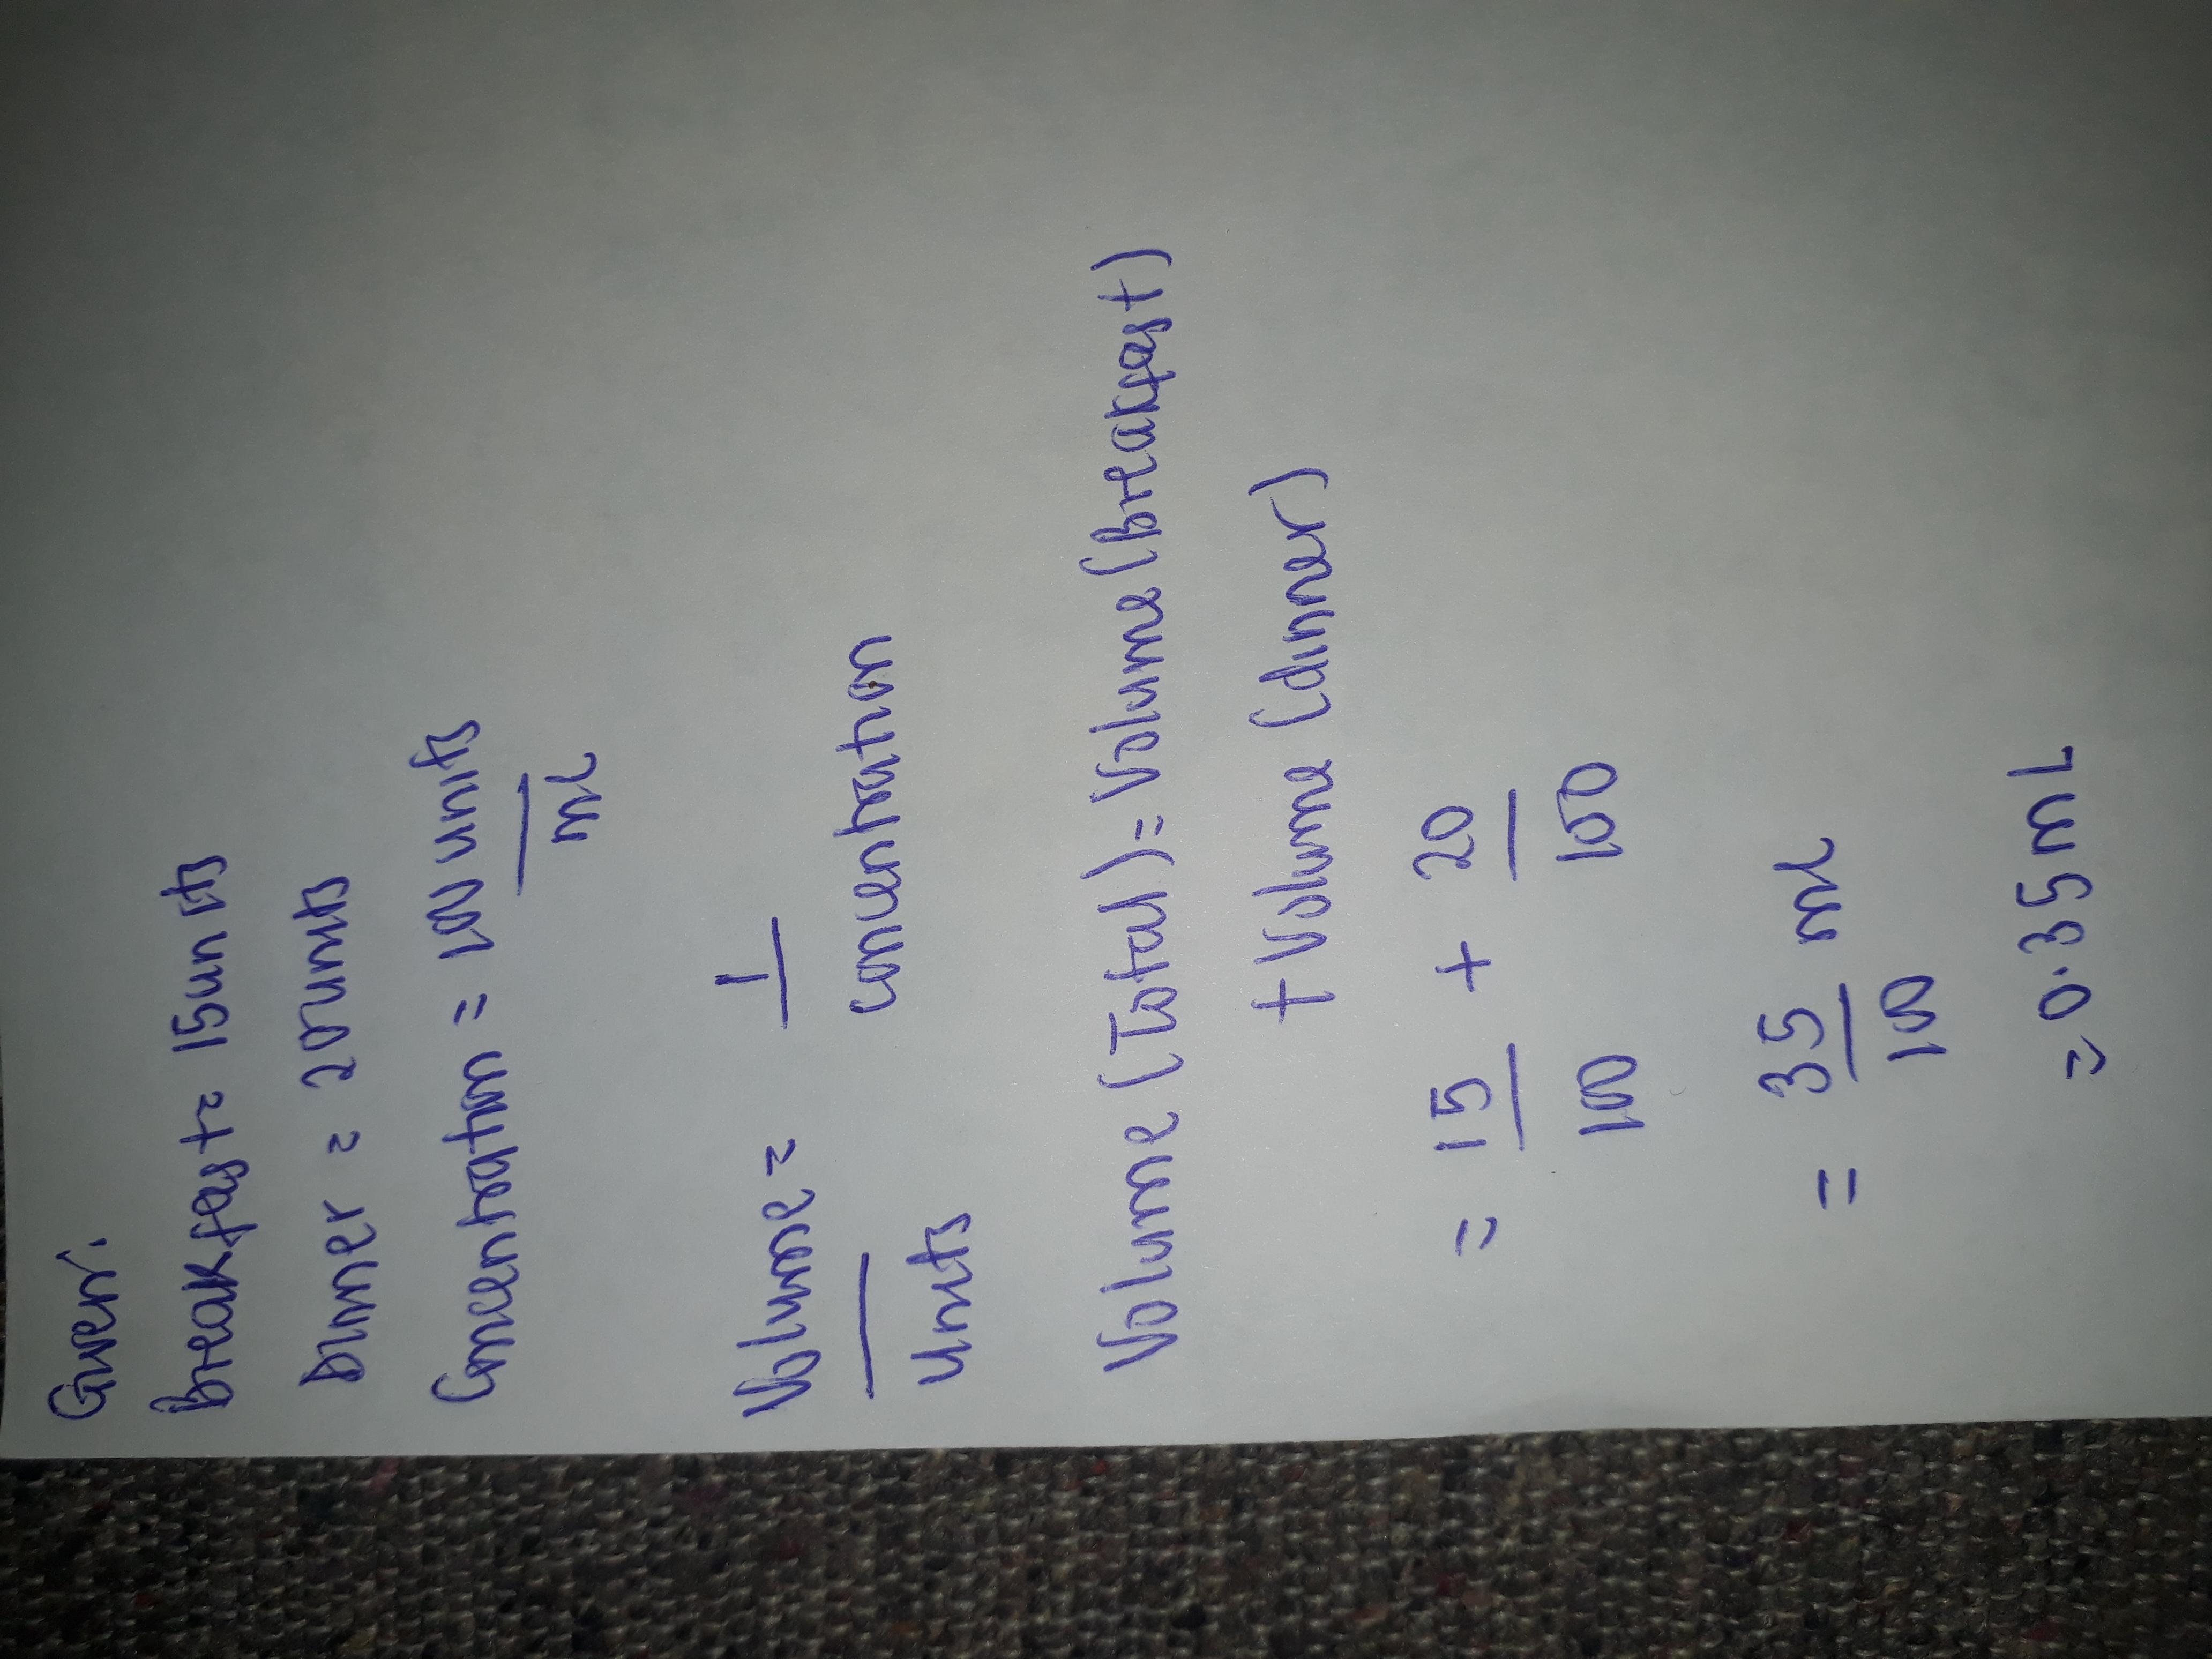 Given:
Breakfast = 15 units
Dinner = 20 units
Concentration = 100 units
mL
Volume = 1
units concentration
Volume (Total) = Volume (Breakfast)
+ Volume (dinner)
= 15 + 20
100 100
= 35 mL
100
= 0.35 mL